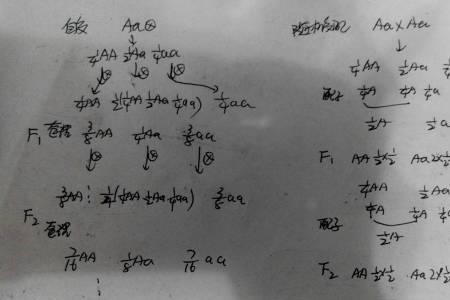 自交 Aa⊗
1/4AA 1/2Aa 1/4aa
1/4AA 1/2(1/4AA 1/2Aa 1/4aa) 1/4aa
F1 整理 3/8AA 1/4Aa 3/8aa
3/8AA 1/4(1/4AA 1/2Aa 1/4aa) 3/8aa
F2 整理
7/16AA 1/8Aa 7/16aa
随机交配 Aa×Aa
1/4AA 1/2Aa
配子 1/4A 1/4A 1/4a
1/2A 1/2a
F1 AA 1/2×1/2 Aa 2×1/2
1/4AA 1/2Aa
配子 1/4A 1/4A 1/4
1/2A
F2 AA 1/2×1/2 Aa 2×1/2